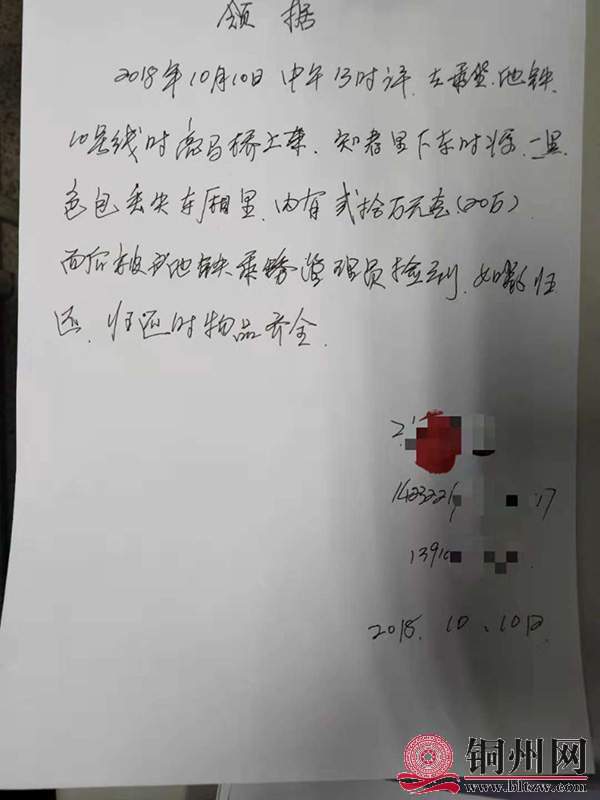 领据
2018年10月10日中午13时许,在乘坐地铁
10号线时 马桥上车,知春里下车时将一黑
色包丢失车厢里,内有贰拾万元 (20万)
而后被 地铁乘务管理员捡到,如数归
还,归还时物品齐全
1423221 17
1391
2018.10.10日
铜州网
www.bltzw.com